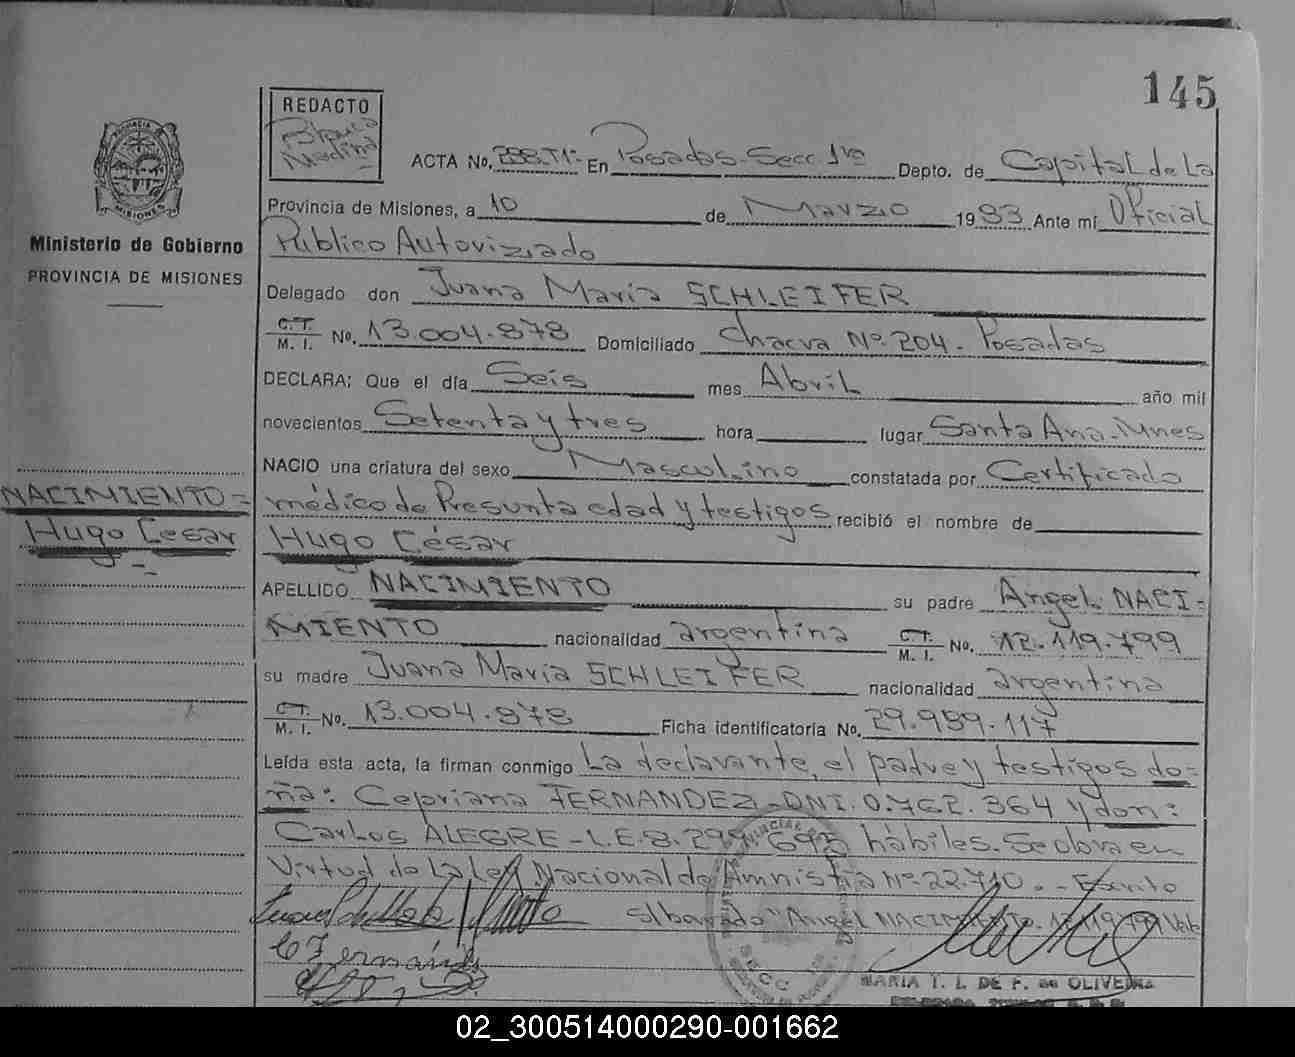 145
REDACTO
Medina
ACTA No. 288.T1º En Posadas-Secc 1ra Depto. de Capital de La
Provincia de Misiones, a 10 de Marzo 1983 Ante mí Oficial
Público Autorizado
Delegado don Juana María SCHLEIFER
C.T. M. I. No. 13.004.878 Domiciliado Chacra Nº 204. Posadas
DECLARA: Que el día Seis mes Abril año mil
novecientos Setenta y tres hora lugar Santa Ana. Mnes
NACIO una criatura del sexo Masculino constatada por Certificado
médico de Presunta edad y testigos recibió el nombre de
Hugo César
APELLIDO NACIMIENTO su padre Angel NACI=
MIENTO nacionalidad argentina C.T. M. I. No. 12.119.799
su madre Juana María SCHLEIFER nacionalidad argentina
C.T. M. I. No. 13.004.878 Ficha identificatoria No. 29.959.117
Leída esta acta, la firman conmigo La declarante, el padre y testigos do=
ña: Cepriana FERNANDEZ-DNI. 0.762.364 y don:
Carlos ALEGRE-L.E. 8.299.693 hábiles. Se labra en
Virtud de La Ley Nacional de Amnistía Nº 22.710.-Escrito
S/borrado "Angel NACIMIENTO. 12.119.799 Vale
C Fernández
MARIA T. I. DE F. de OLIVEIRA
PROVINCIA DE
MISIONES
Ministerio de Gobierno
PROVINCIA DE MISIONES
NACIMIENTO=
Hugo Cesar
SECC.
02_300514000290-001662